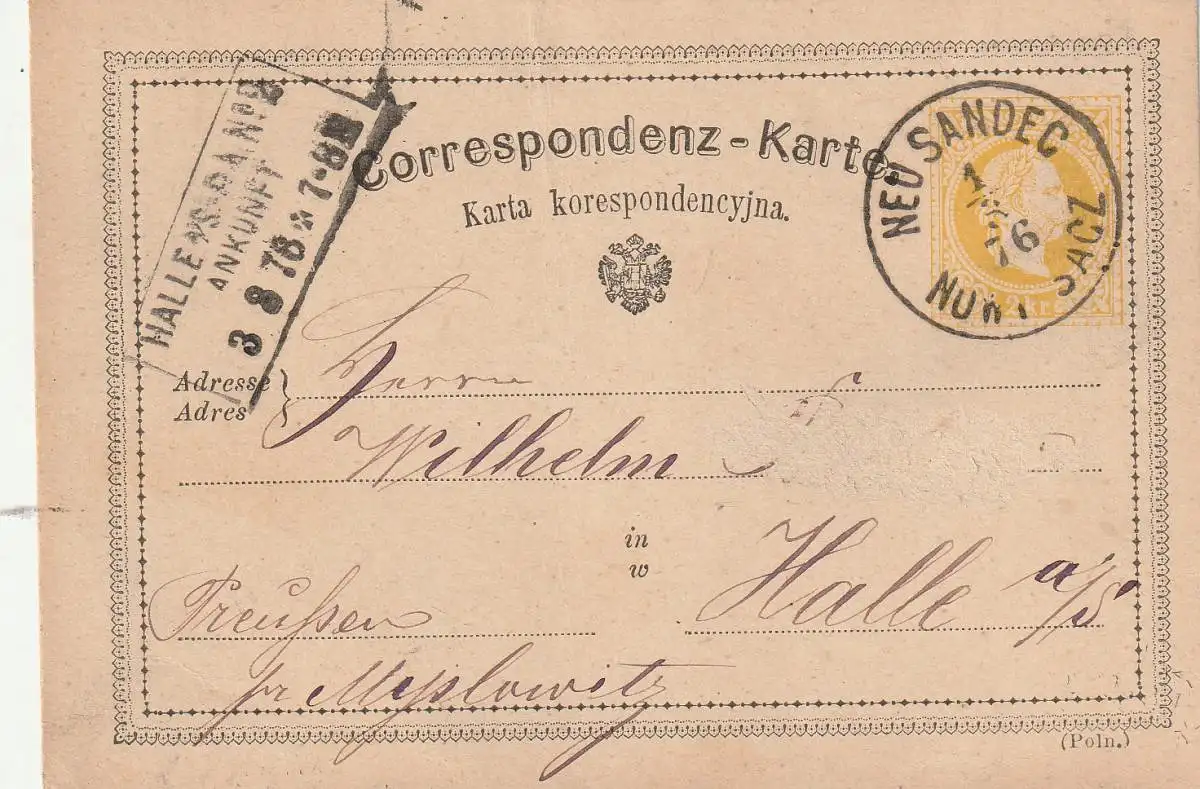 HALLE A/S. P.A. No 2
ANKUNFT
3 8 76 7-8
Correspondenz-Karte.
Karta korespondencyjna.
NEU SANDEC
1
8
76
NOWY SACZ
2 Kr.
Adresse
Adres
Herrn
Wilhelm
in
w
Halle a/S
Preußen
pr Myslowitz
(Poln.)